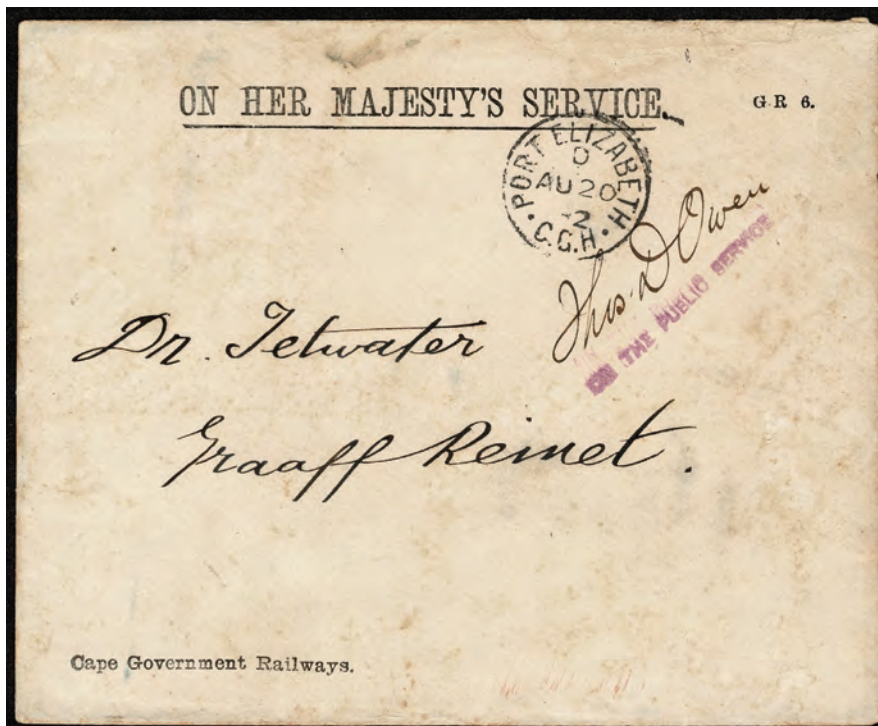 ON HER MAJESTY'S SERVICE.
G R 6.
PORT ELIZABETH
D
AU 20
2
C.G.H.
Thos. D Owen
ON THE PUBLIC SERVICE
Dr. Tetwater
Graaff Reinet.
Cape Government Railways.